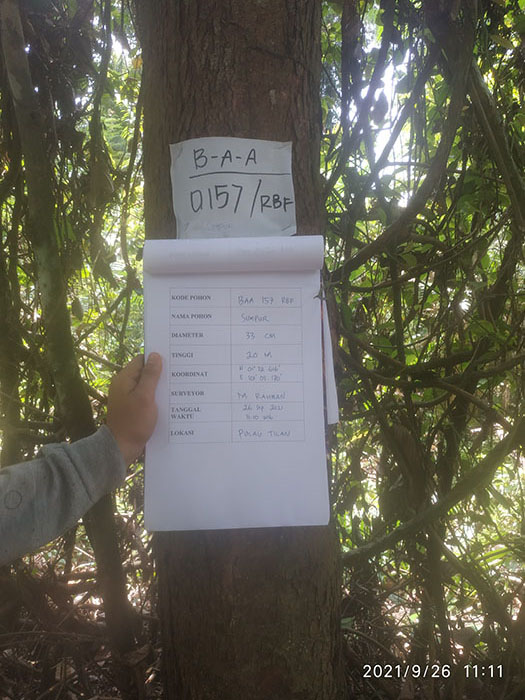 B-A-A
0157/RBF
KODE POHON BAA 157 RBF
NAMA POHON SIMPUR
DIAMETER 33 CM
TINGGI 20 M
KOORDINAT
SURVEYOR M. RAHMAN
TANGGAL
WAKTU
LOKASI PULAU TILAN
2021/9/26 11:11